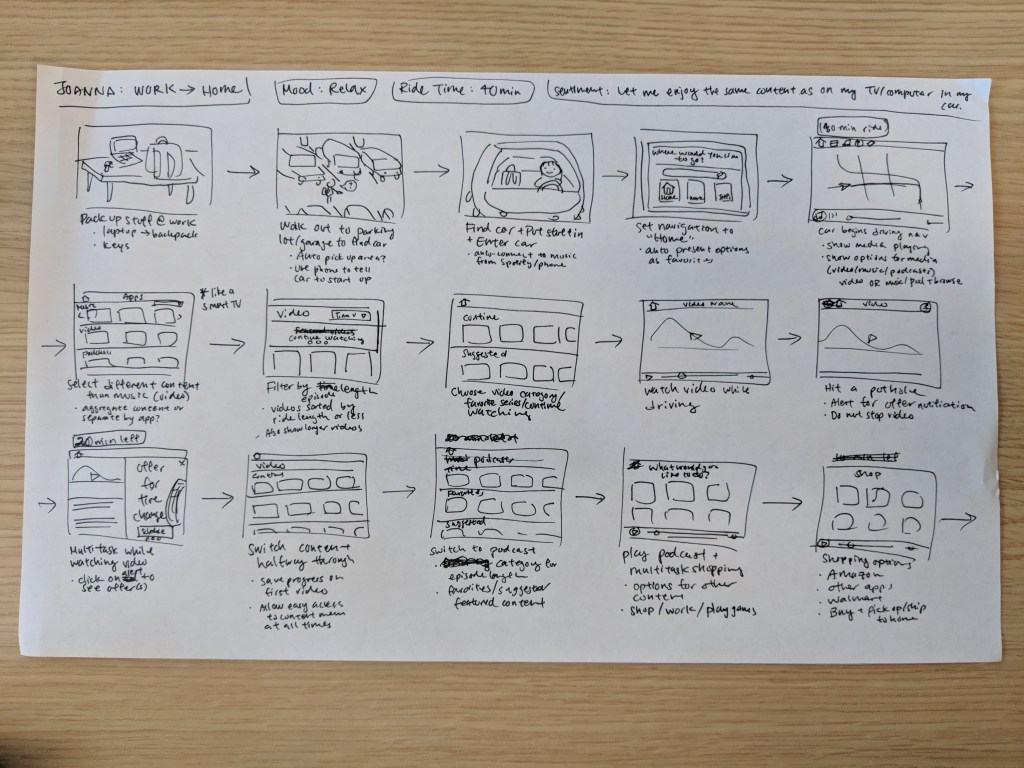 JOANNA: WORK → HOME
Mood: Relax
Ride Time: 40 min
Sentiment: Let me enjoy the same content as on my TV/computer in my
car.
Pack up stuff @ work
• laptop → backpack
• keys
Walk out to parking
lot/garage to find car
• Auto pick up area?
• Use phone to tell
car to start up
Find car + Put stuff in
+ Enter car
• auto-connect to music
from Spotify/phone
Where would you like
to go?
Home
Work
Set navigation to
"Home"
• auto present options
as favorites
40 min ride
Car begins driving nav
• show media playing
• show options for media
(video/music/podcasts)
video OR music/pod + browse
Apps
Music
Video
Podcasts
* like a
smart TV
Select different content
than music (video)
• aggregate content or
separate by app?
Video
Time
Continue watching
Filter by length
episode
• videos sorted by
ride length or less
• Also show longer videos
Continue
Suggested
Choose video category/
favorite series/continue
watching
Video Name
Watch video while
driving
Video
Hit a pothole
• Alert for offer notification
• Do not stop video
20 min left
offer
for
tire
change
Multitask while
watching video
• click on alert to
see offer(s)
Video
Continue
Switch content
halfway through
• save progress on
first video
• Allow easy access
to content menu
at all times
podcasts
Time
Favorites
Suggested
Switch to podcast
• category for
episode length
• favorites/suggested
featured content
What would you
like to do?
play podcast +
multitask shopping
• options for other
content
• shop/work/play games
Shop
Shopping options
• Amazon
• other apps
• Walmart
• Buy + pick up/ship
to home